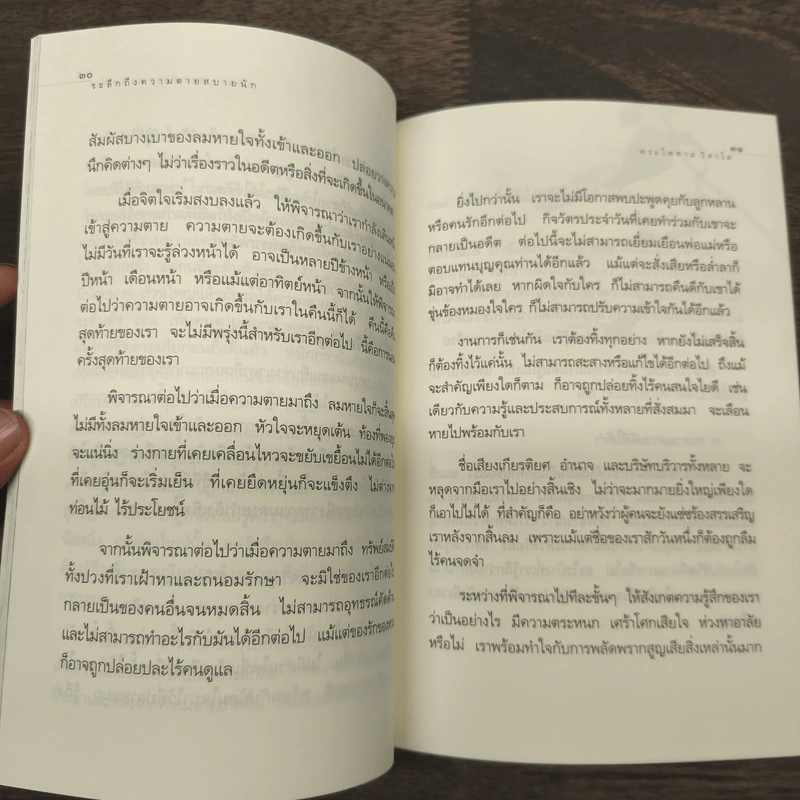 ๓๐
ระลึกถึงความตายสบายนัก
สัมผัสบางเบาของลมหายใจทั้งเข้าและออก ปล่อยวางความ
นึกคิดต่างๆ ไม่ว่าเรื่องราวในอดีตหรือสิ่งที่จะเกิดขึ้นในอนาคต
เมื่อจิตใจเริ่มสงบลงแล้ว ให้พิจารณาว่าเรากำลังเดินหน้า
เข้าสู่ความตาย ความตายจะต้องเกิดขึ้นกับเราอย่างแน่นอน
ไม่มีวันที่เราจะรู้ล่วงหน้าได้ อาจเป็นหลายปีข้างหน้า หรือเป็น
ปีหน้า เดือนหน้า หรือแม้แต่อาทิตย์หน้า จากนั้นให้พิจารณา
ต่อไปว่าความตายอาจเกิดขึ้นกับเราในคืนนี้ก็ได้ คืนนี้คือคืน
สุดท้ายของเรา จะไม่มีพรุ่งนี้สำหรับเราอีกต่อไป นี้คือการนอน
ครั้งสุดท้ายของเรา
พิจารณาต่อไปว่าเมื่อความตายมาถึง ลมหายใจก็จะสิ้นสุด
ไม่มีทั้งลมหายใจเข้าและออก หัวใจจะหยุดเต้น ท้องที่พองยุบ
จะแน่นิ่ง ร่างกายที่เคยเคลื่อนไหวจะขยับเขยื้อนไม่ได้อีกต่อไป
ที่เคยอุ่นก็จะเริ่มเย็น ที่เคยยืดหยุ่นก็จะแข็งตึง ไม่ต่างจาก
ท่อนไม้ ไร้ประโยชน์
จากนั้นพิจารณาต่อไปว่าเมื่อความตายมาถึง ทรัพย์สมบัติ
ทั้งปวงที่เราเฝ้าหาและถนอมรักษา จะมิใช่ของเราอีกต่อไป
กลายเป็นของคนอื่นจนหมดสิ้น ไม่สามารถอุทธรณ์คัดค้าน
และไม่สามารถทำอะไรกับมันได้อีกต่อไป แม้แต่ของรักของหวง
ก็อาจถูกปล่อยปละไร้คนดูแล
พระไพศาล วิสาโล
๓๑
ยิ่งไปกว่านั้น เราจะไม่มีโอกาสพบปะพูดคุยกับลูกหลาน
หรือคนรักอีกต่อไป กิจวัตรประจำวันที่เคยทำร่วมกับเขาจะ
กลายเป็นอดีต ต่อไปนี้จะไม่สามารถเยี่ยมเยือนพ่อแม่หรือ
ตอบแทนบุญคุณท่านได้อีกแล้ว แม้แต่จะสั่งเสียหรือล่ำลาก็
มิอาจทำได้เลย หากผิดใจกับใคร ก็ไม่สามารถคืนดีกับเขาได้
ขุ่นข้องหมองใจใคร ก็ไม่สามารถปรับความเข้าใจกันได้อีกแล้ว
งานการก็เช่นกัน เราต้องทิ้งทุกอย่าง หากยังไม่เสร็จสิ้น
ก็ต้องทิ้งไว้แค่นั้น ไม่สามารถสะสางหรือแก้ไขได้อีกต่อไป ถึงแม้
จะสำคัญเพียงใดก็ตาม ก็อาจถูกปล่อยทิ้งไร้คนสนใจไยดี เช่น
เดียวกับความรู้และประสบการณ์ทั้งหลายที่สั่งสมมา จะเลือน
หายไปพร้อมกับเรา
ชื่อเสียงเกียรติยศ อำนาจ และบริษัทบริวารทั้งหลาย จะ
หลุดจากมือเราไปอย่างสิ้นเชิง ไม่ว่าจะมากมายยิ่งใหญ่เพียงใด
ก็เอาไปไม่ได้ ที่สำคัญก็คือ อย่าหวังว่าผู้คนจะยังแซ่ซร้องสรรเสริญ
เราหลังจากสิ้นลม เพราะแม้แต่ชื่อของเราสักวันหนึ่งก็ต้องถูกลืม
ไร้คนจดจำ
ระหว่างที่พิจารณาไปทีละขั้นๆ ให้สังเกตความรู้สึกของเรา
ว่าเป็นอย่างไร มีความตระหนก เศร้าโศกเสียใจ ห่วงหาอาลัย
หรือไม่ เราพร้อมทำใจกับการพลัดพรากสูญเสียสิ่งเหล่านั้นมาก